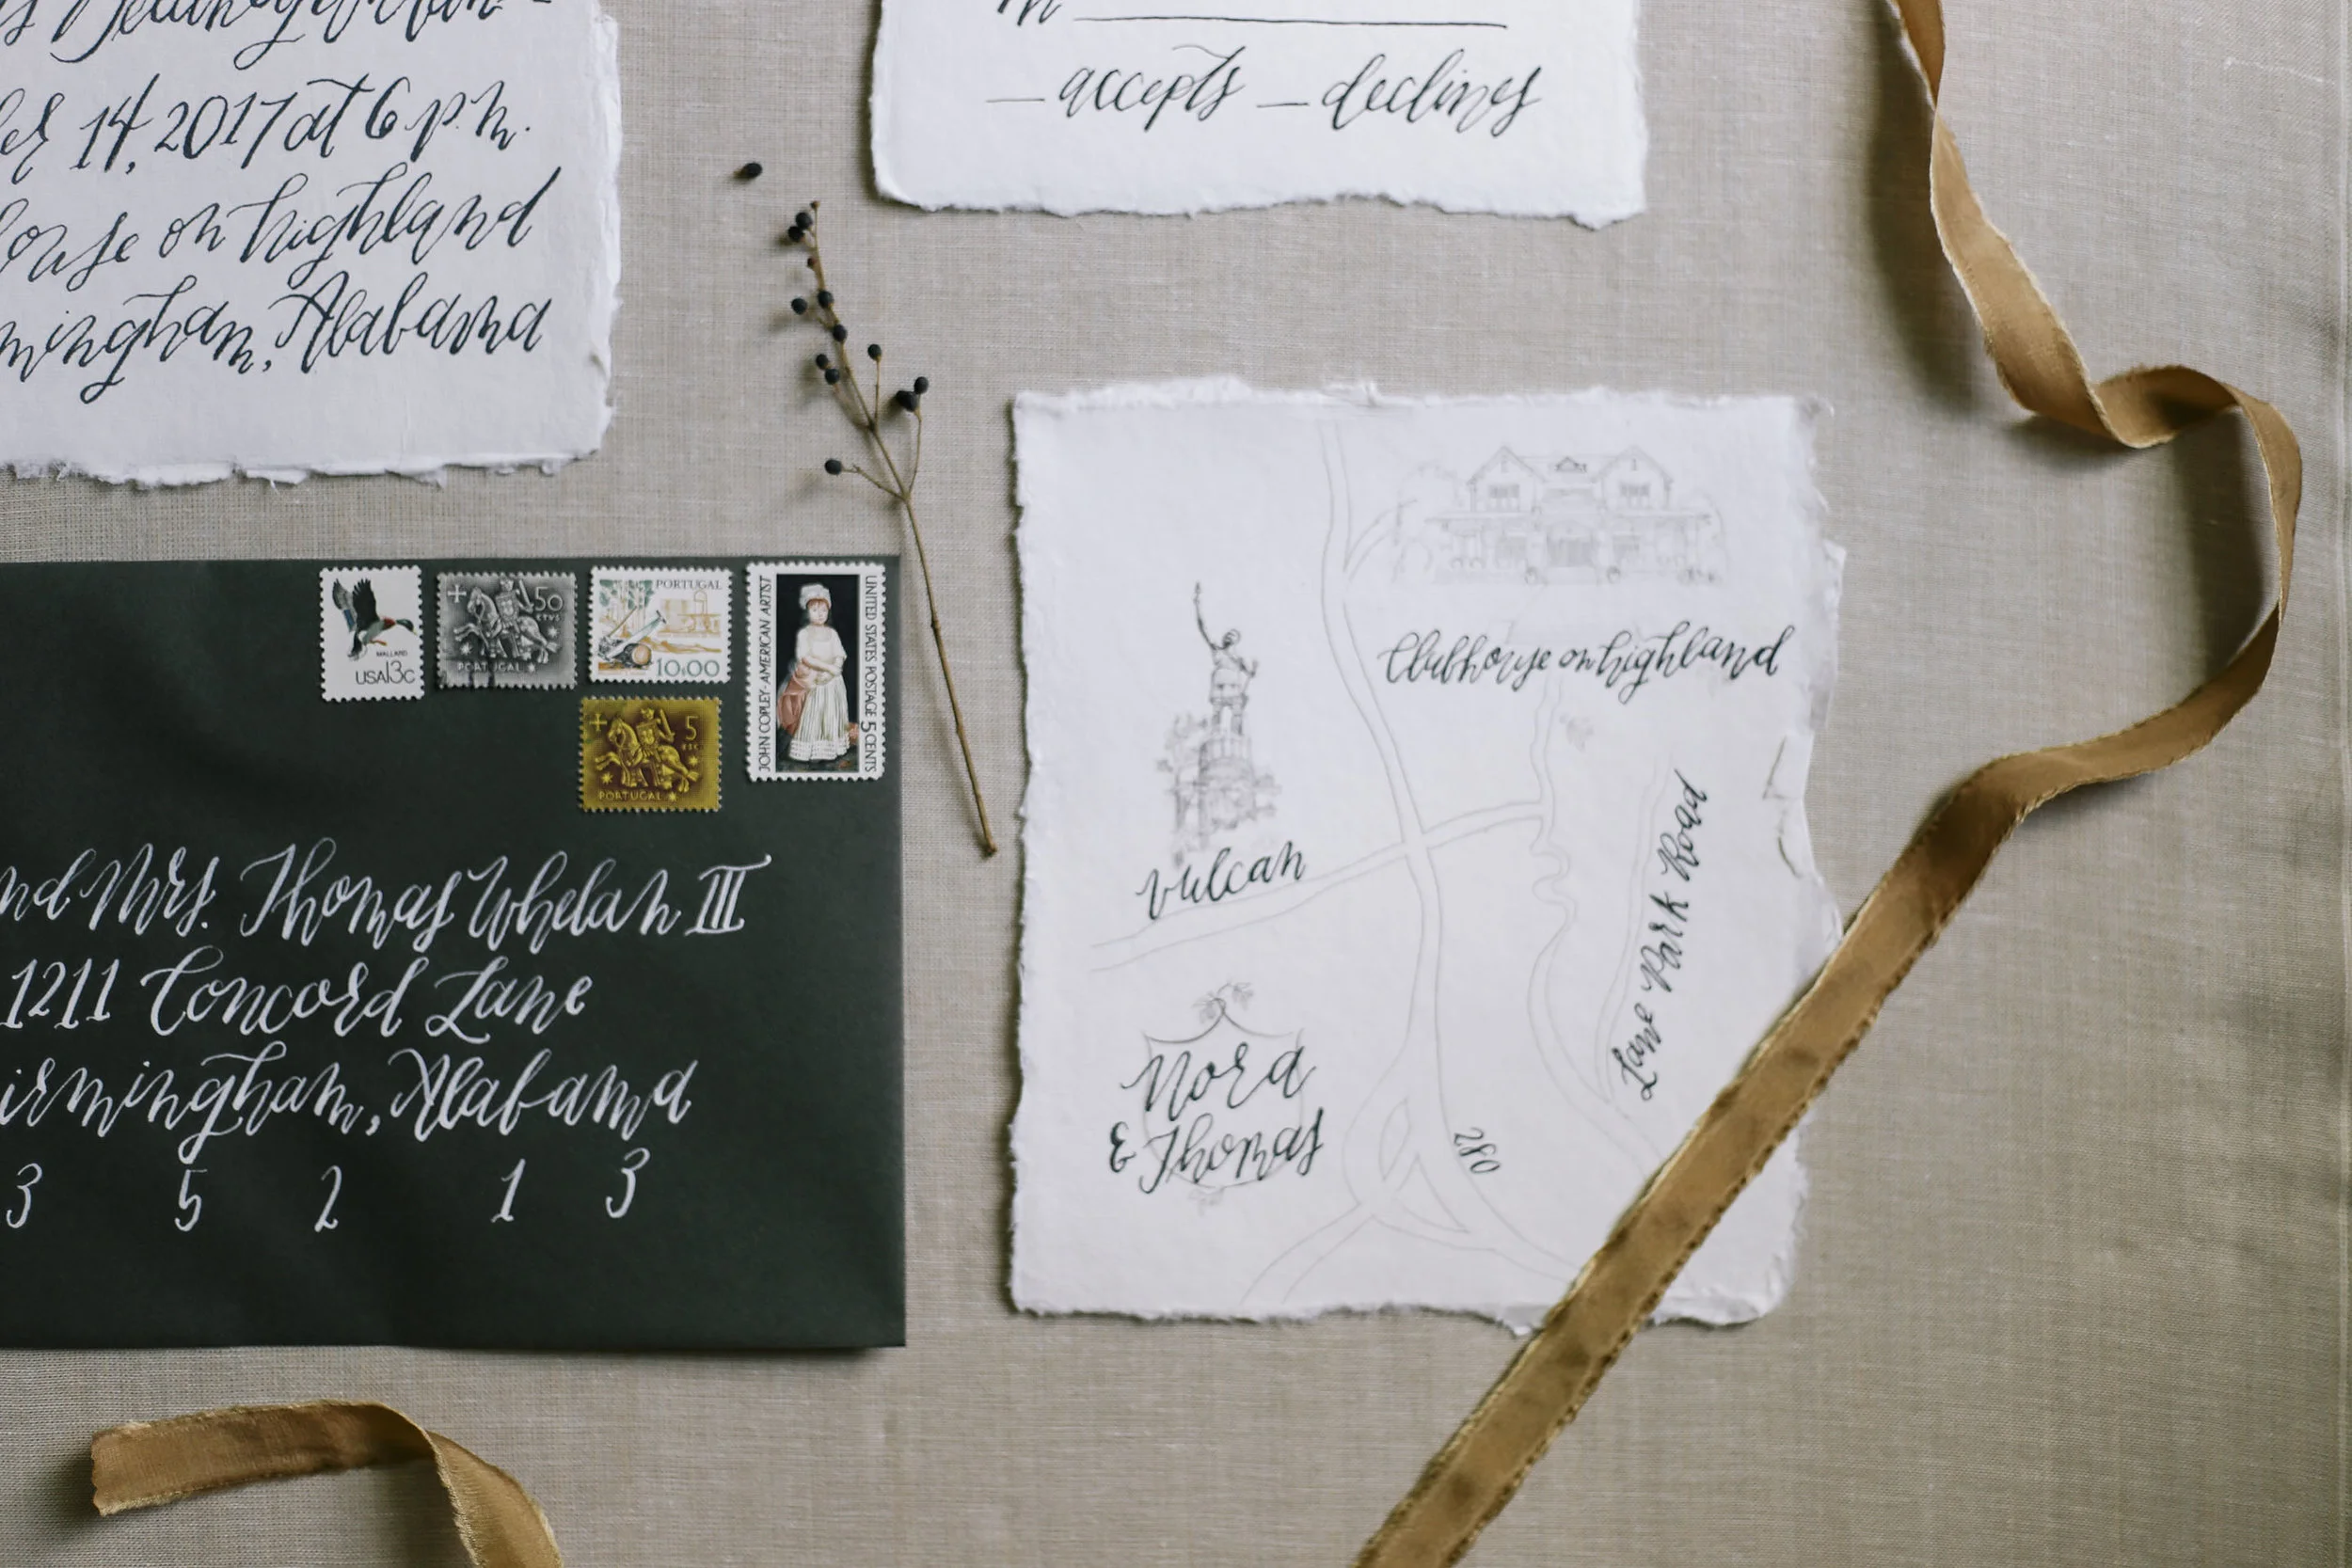 14, 2017 at 6 p.m.
ouse on highland
mingham, Alabama
m
accepts declines
MALLARD
USA13c
50
CTVS
PORTUGAL
PORTUGAL
10.00
5
ESC
PORTUGAL
JOHN COPLEY-AMERICAN ARTIST
UNITED STATES POSTAGE 5 CENTS
nd Mrs. Thomas Whelan III
1211 Concord Lane
irmingham, Alabama
3 5 2 1 3
Clubhouse on highland
Vulcan
Lane Park Road
Nora
& Thomas
280